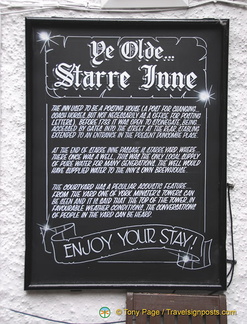 Ye Olde...
Starre Inne
THE INN USED TO BE A POSTING HOUSE (A POST FOR CHANGING
COACH HORSES, BUT NOT NECESSARILY AS A OFFICE FOR POSTING
LETTERS). BEFORE 1733 IT WAS OPEN TO STONEGATE, BEING
ACCESSED BY GATES INTO THE STREET AT THE REAR. STABLING
EXTENDED TO AN ENTRANCE IN THE PRESENT DUNCOMBE PLACE.
AT THE END OF STARRE INNE PASSAGE IS STARRE YARD, WHERE
THERE ONCE WAS A WELL. THIS WAS THE ONLY LOCAL SUPPLY
OF PURE WATER FOR MANY GENERATIONS. THE WELL WOULD
HAVE SUPPLIED WATER TO THE INN'S OWN BREWHOUSE.
THE COURTYARD HAS A PECULIAR ACOUSTIC FEATURE...
FROM THE YARD ONE OF YORK MINSTER'S TOWERS CAN
BE SEEN AND IT IS SAID THAT THE TOP OF THE TOWER, IN
FAVOURABLE WEATHER CONDITIONS, THE CONVERSATIONS
OF PEOPLE IN THE YARD CAN BE HEARD.
ENJOY YOUR STAY!
© Tony Page / Travelsignposts.com